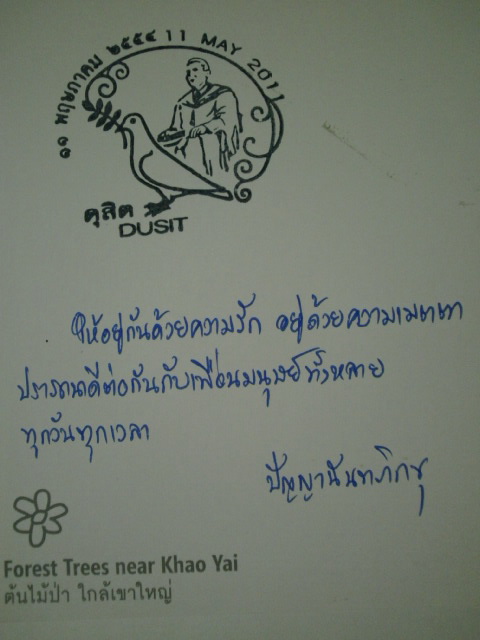 ๑๑ พฤษภาคม ๒๕๕๔ 11 MAY 2011
ดุสิต
DUSIT
ให้อยู่กันด้วยความรัก อยู่ด้วยความเมตตา
ปรารถนาดีต่อกันกับเพื่อนมนุษย์ทั้งหลาย
ทุกวันทุกเวลา
ปัญญานันทภิกขุ
Forest Trees near Khao Yai
ต้นไม้ป่า ใกล้เขาใหญ่